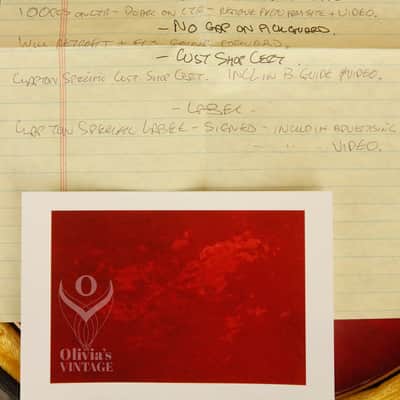 - NO GAP ON PICKGUARD.
WILL RETROFIT + FIX GOING FORWARD.
- CUST SHOP CERT.
CLAPTON SPECIFIC CUST SHOP CERT. INCL IN B. GUIDE & VIDEO.
- LABEL -
CLAPTON SPECIAL LABEL - SIGNED - INCLUD IN ADVERTISING
VIDEO.
O
Olivia's
VINTAGE